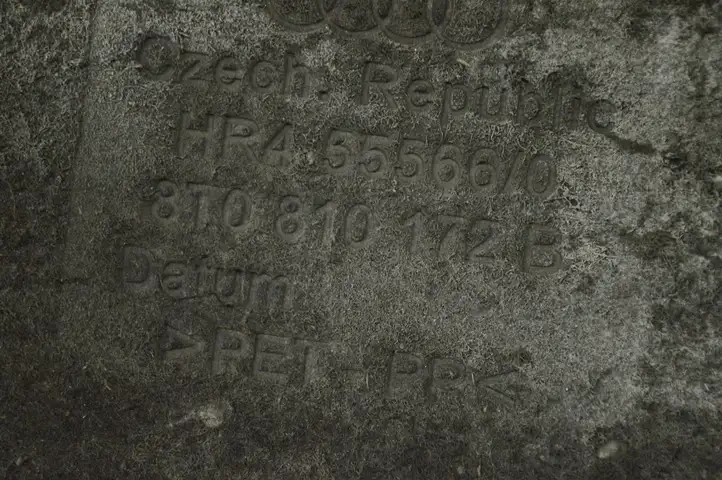 Czech. Republic
HR4 55566/0
8T0 810 172 B
Datum
>PET-PP<